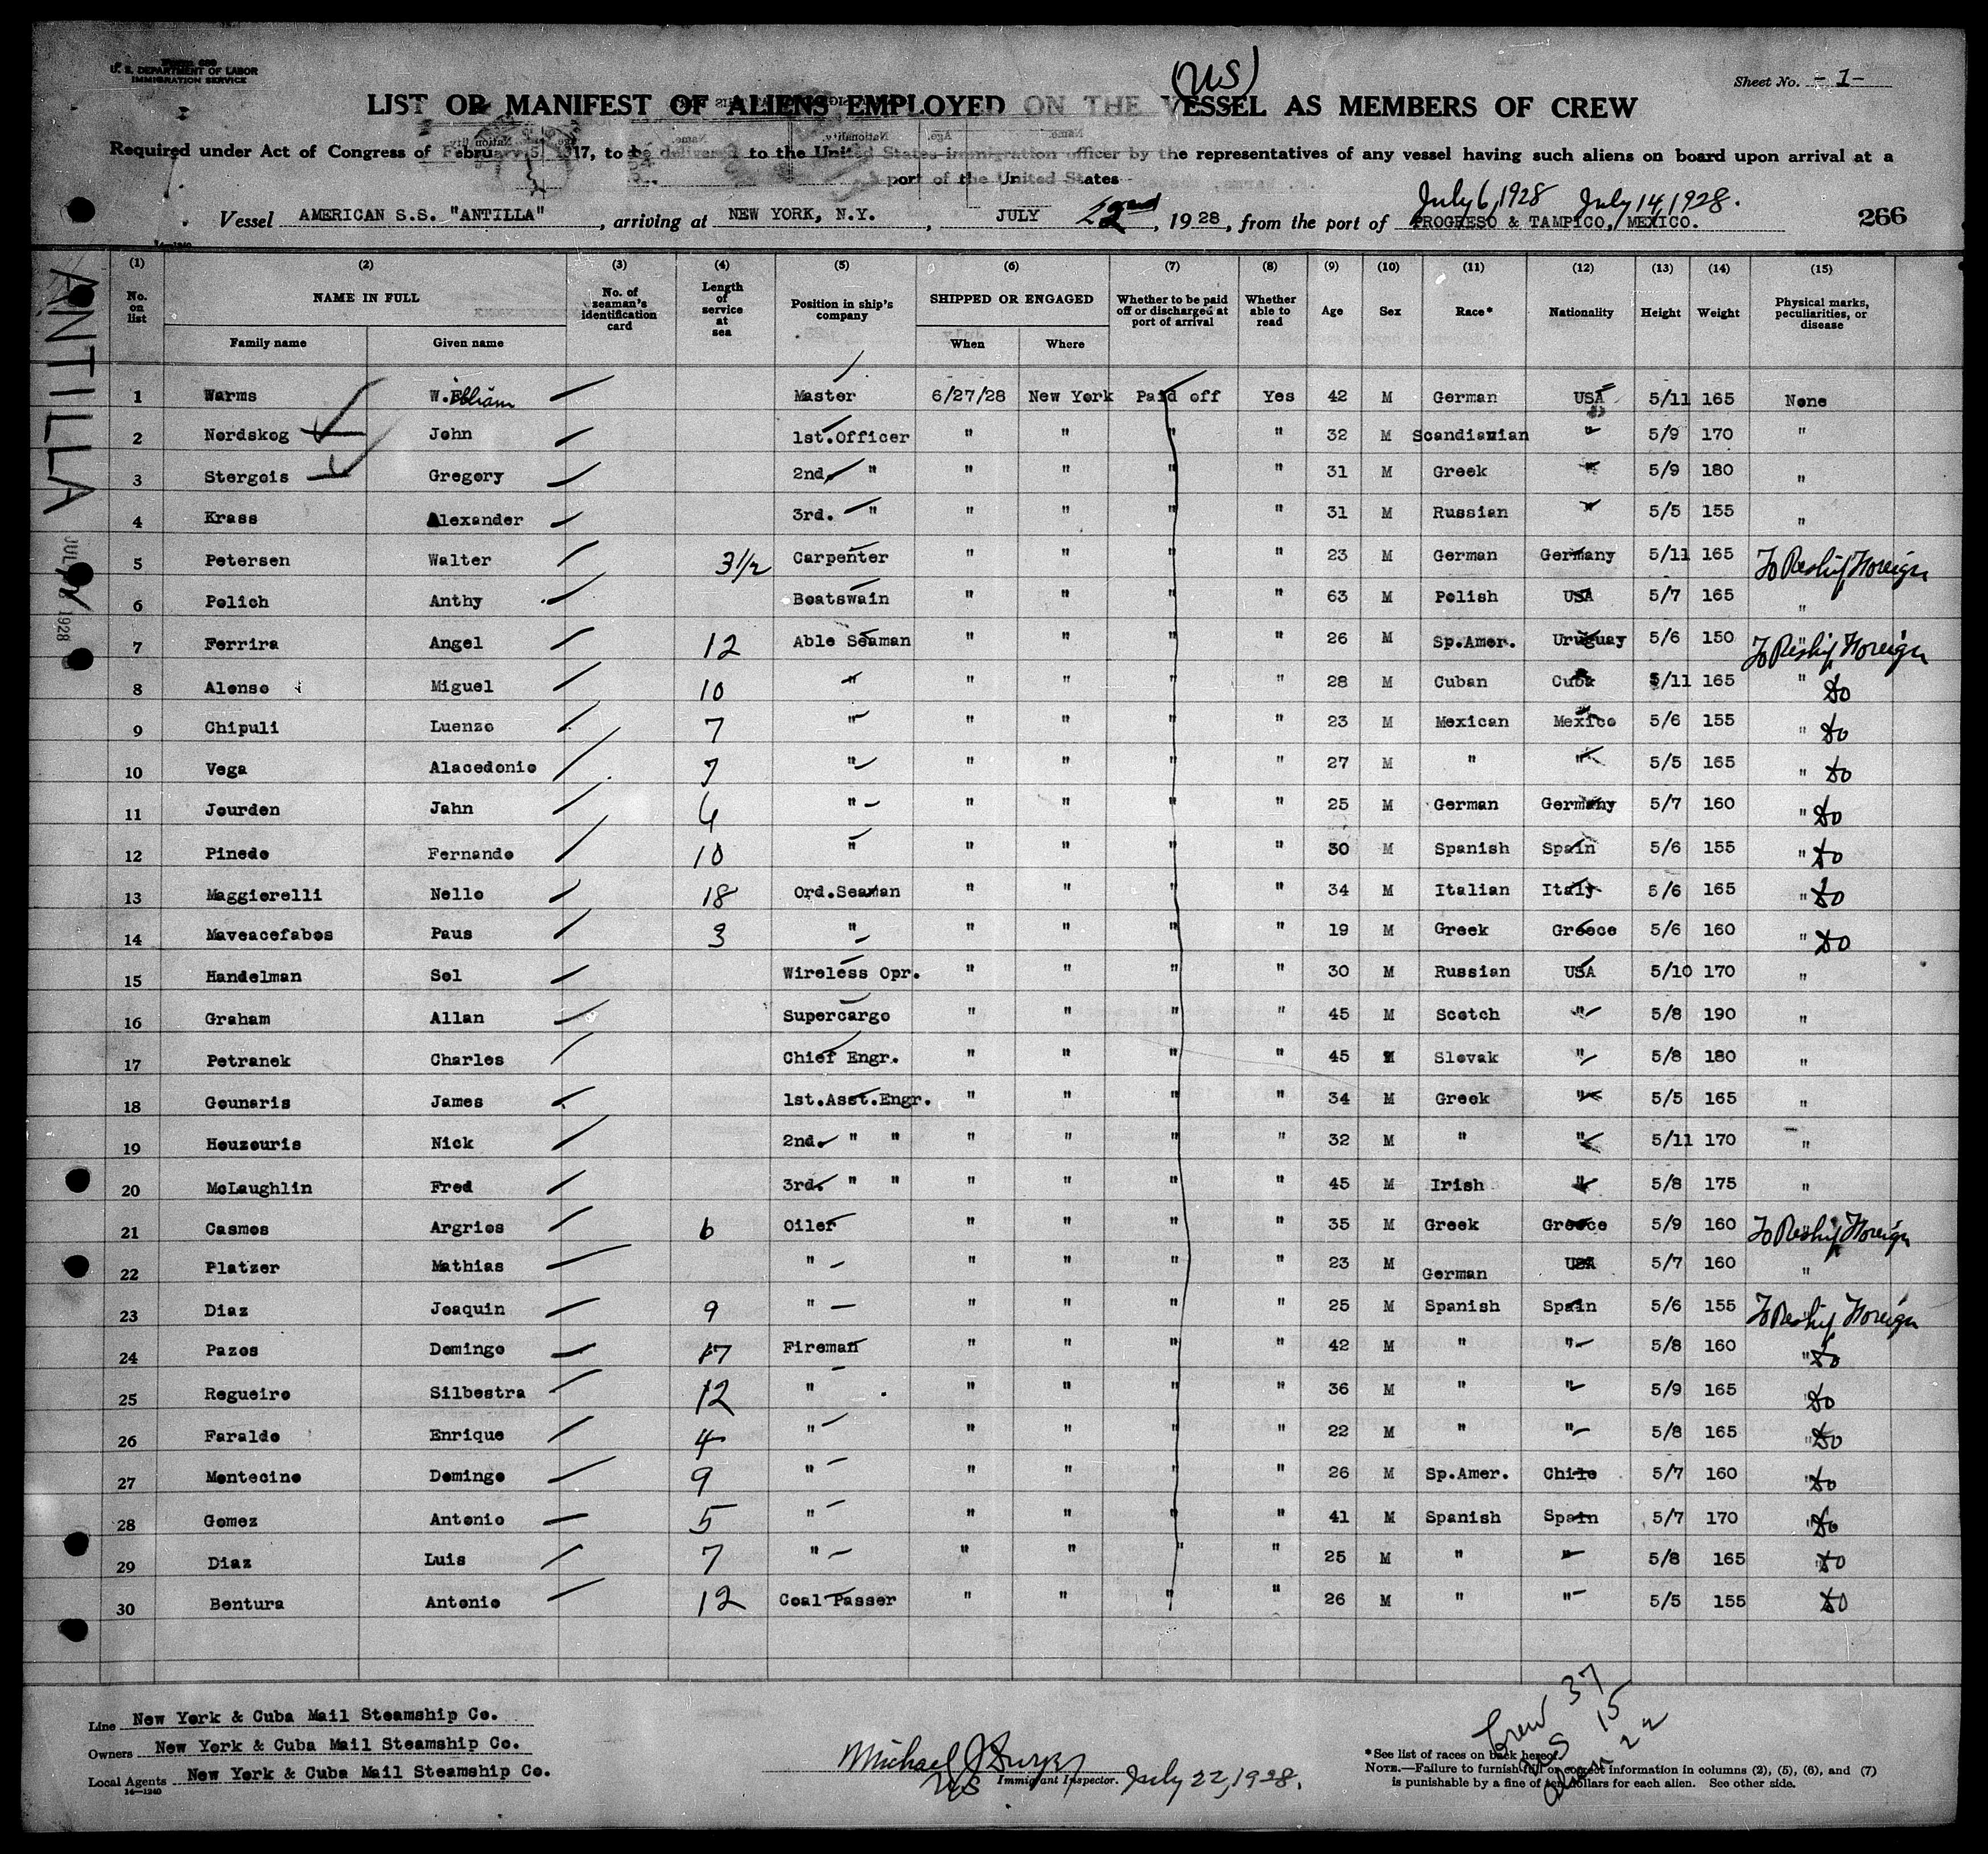 Form 680
U. S. DEPARTMENT OF LABOR
IMMIGRATION SERVICE
(US)
Sheet No. - 1 -
LIST OR MANIFEST OF ALIENS EMPLOYED ON THE VESSEL AS MEMBERS OF CREW
Required under Act of Congress of February 5, 1917, to be delivered to the United States immigration officer by the representatives of any vessel having such aliens on board upon arrival at a
port of the United States
July 6, 1928 July 14, 1928.
Vessel AMERICAN S.S. "ANTILLA", arriving at NEW YORK, N.Y., JULY 22nd, 1928, from the port of PROGRESO & TAMPICO, MEXICO. 266
ANTILLA
(1) (2) (3) (4) (5) (6) (7) (8) (9) (10) (11) (12) (13) (14) (15)
No. on list NAME IN FULL No. of seaman's identification card Length of service at sea Position in ship's company SHIPPED OR ENGAGED Whether to be paid off or discharged at port of arrival Whether able to read Age Sex Race* Nationality Height Weight Physical marks, peculiarities, or disease
Family name Given name When Where
1 Warms W.illiam Master 6/27/28 New York Paid off Yes 42 M German USA 5/11 165 None
2 Nordskog John 1st.Officer " " " " 32 M Scandianian " 5/9 170 "
3 Stergois Gregory 2nd. " " " " " 31 M Greek " 5/9 180 "
4 Krass Alexander 3rd. " " " " " 31 M Russian " 5/5 155 "
5 Petersen Walter 3 1/2 Carpenter " " " " 23 M German Germany 5/11 165 To Reship Foreign
6 Polich Anthy Boatswain " " " " 63 M Polish USA 5/7 165 "
7 Ferrira Angel 12 Able Seaman " " " " 26 M Sp.Amer. Uruguay 5/6 150 To Reship Foreign
8 Alonso Miguel 10 " " " " " 28 M Cuban Cuba 5/11 165 " Do
9 Chipuli Luenzo 7 " " " " " 23 M Mexican Mexico 5/6 155 " Do
10 Vega Alacedonio 7 " " " " " 27 M " " 5/5 165 " Do
11 Jourden Jahn 6 " " " " " 25 M German Germany 5/7 160 " Do
12 Pinedo Fernando 10 " " " " " 30 M Spanish Spain 5/6 155 " Do
13 Maggiorelli Nello 18 Ord.Seaman " " " " 34 M Italian Italy 5/6 165 " Do
14 Maveacefabos Paus 3 " " " " " 19 M Greek Greece 5/6 160 " Do
15 Handelman Sol Wireless Opr. " " " " 30 M Russian USA 5/10 170 "
16 Graham Allan Supercargo " " " " 45 M Scotch " 5/8 190 "
17 Petranek Charles Chief Engr. " " " " 45 M Slovak " 5/8 180 "
18 Gounaris James 1st.Asst.Engr. " " " " 34 M Greek " 5/5 165 "
19 Houzouris Nick 2nd. " " " " " " 32 M " " 5/11 170 "
20 McLaughlin Fred 3rd. " " " " " " 45 M Irish " 5/8 175 "
21 Casmos Argrios 6 Oiler " " " " 35 M Greek Greece 5/9 160 To Reship Foreign
22 Platzer Mathias " " " " " 23 M German USA 5/7 160 "
23 Diaz Joaquin 9 " " " " " 25 M Spanish Spain 5/6 155 To Reship Foreign
24 Pazos Domingo 17 Fireman " " " " 42 M " " 5/8 160 " Do
25 Regueiro Silbestra 12 " " " " " 36 M " " 5/9 165 Do
26 Faraldo Enrique 4 " " " " " 22 M " " 5/8 165 " Do
27 Montecino Domingo 9 " " " " " 26 M Sp.Amer. Chile 5/7 160 " Do
28 Gomez Antonio 5 " " " " " 41 M Spanish Spain 5/7 170 " Do
29 Diaz Luis 7 " " " " " 25 M " " 5/8 165 Do
30 Bentura Antonio 12 Coal Passer " " " " 26 M " " 5/5 155 Do
Line New York & Cuba Mail Steamship Co.
Owners New York & Cuba Mail Steamship Co.
Local Agents New York & Cuba Mail Steamship Co.
14-1240
Michael J.
Immigrant Inspector. July 22, 1928.
Crew 37
US 15
Alien 22
*See list of races on back hereof.
NOTE.—Failure to furnish full or correct information in columns (2), (5), (6), and (7)
is punishable by a fine of ten dollars for each alien. See other side.